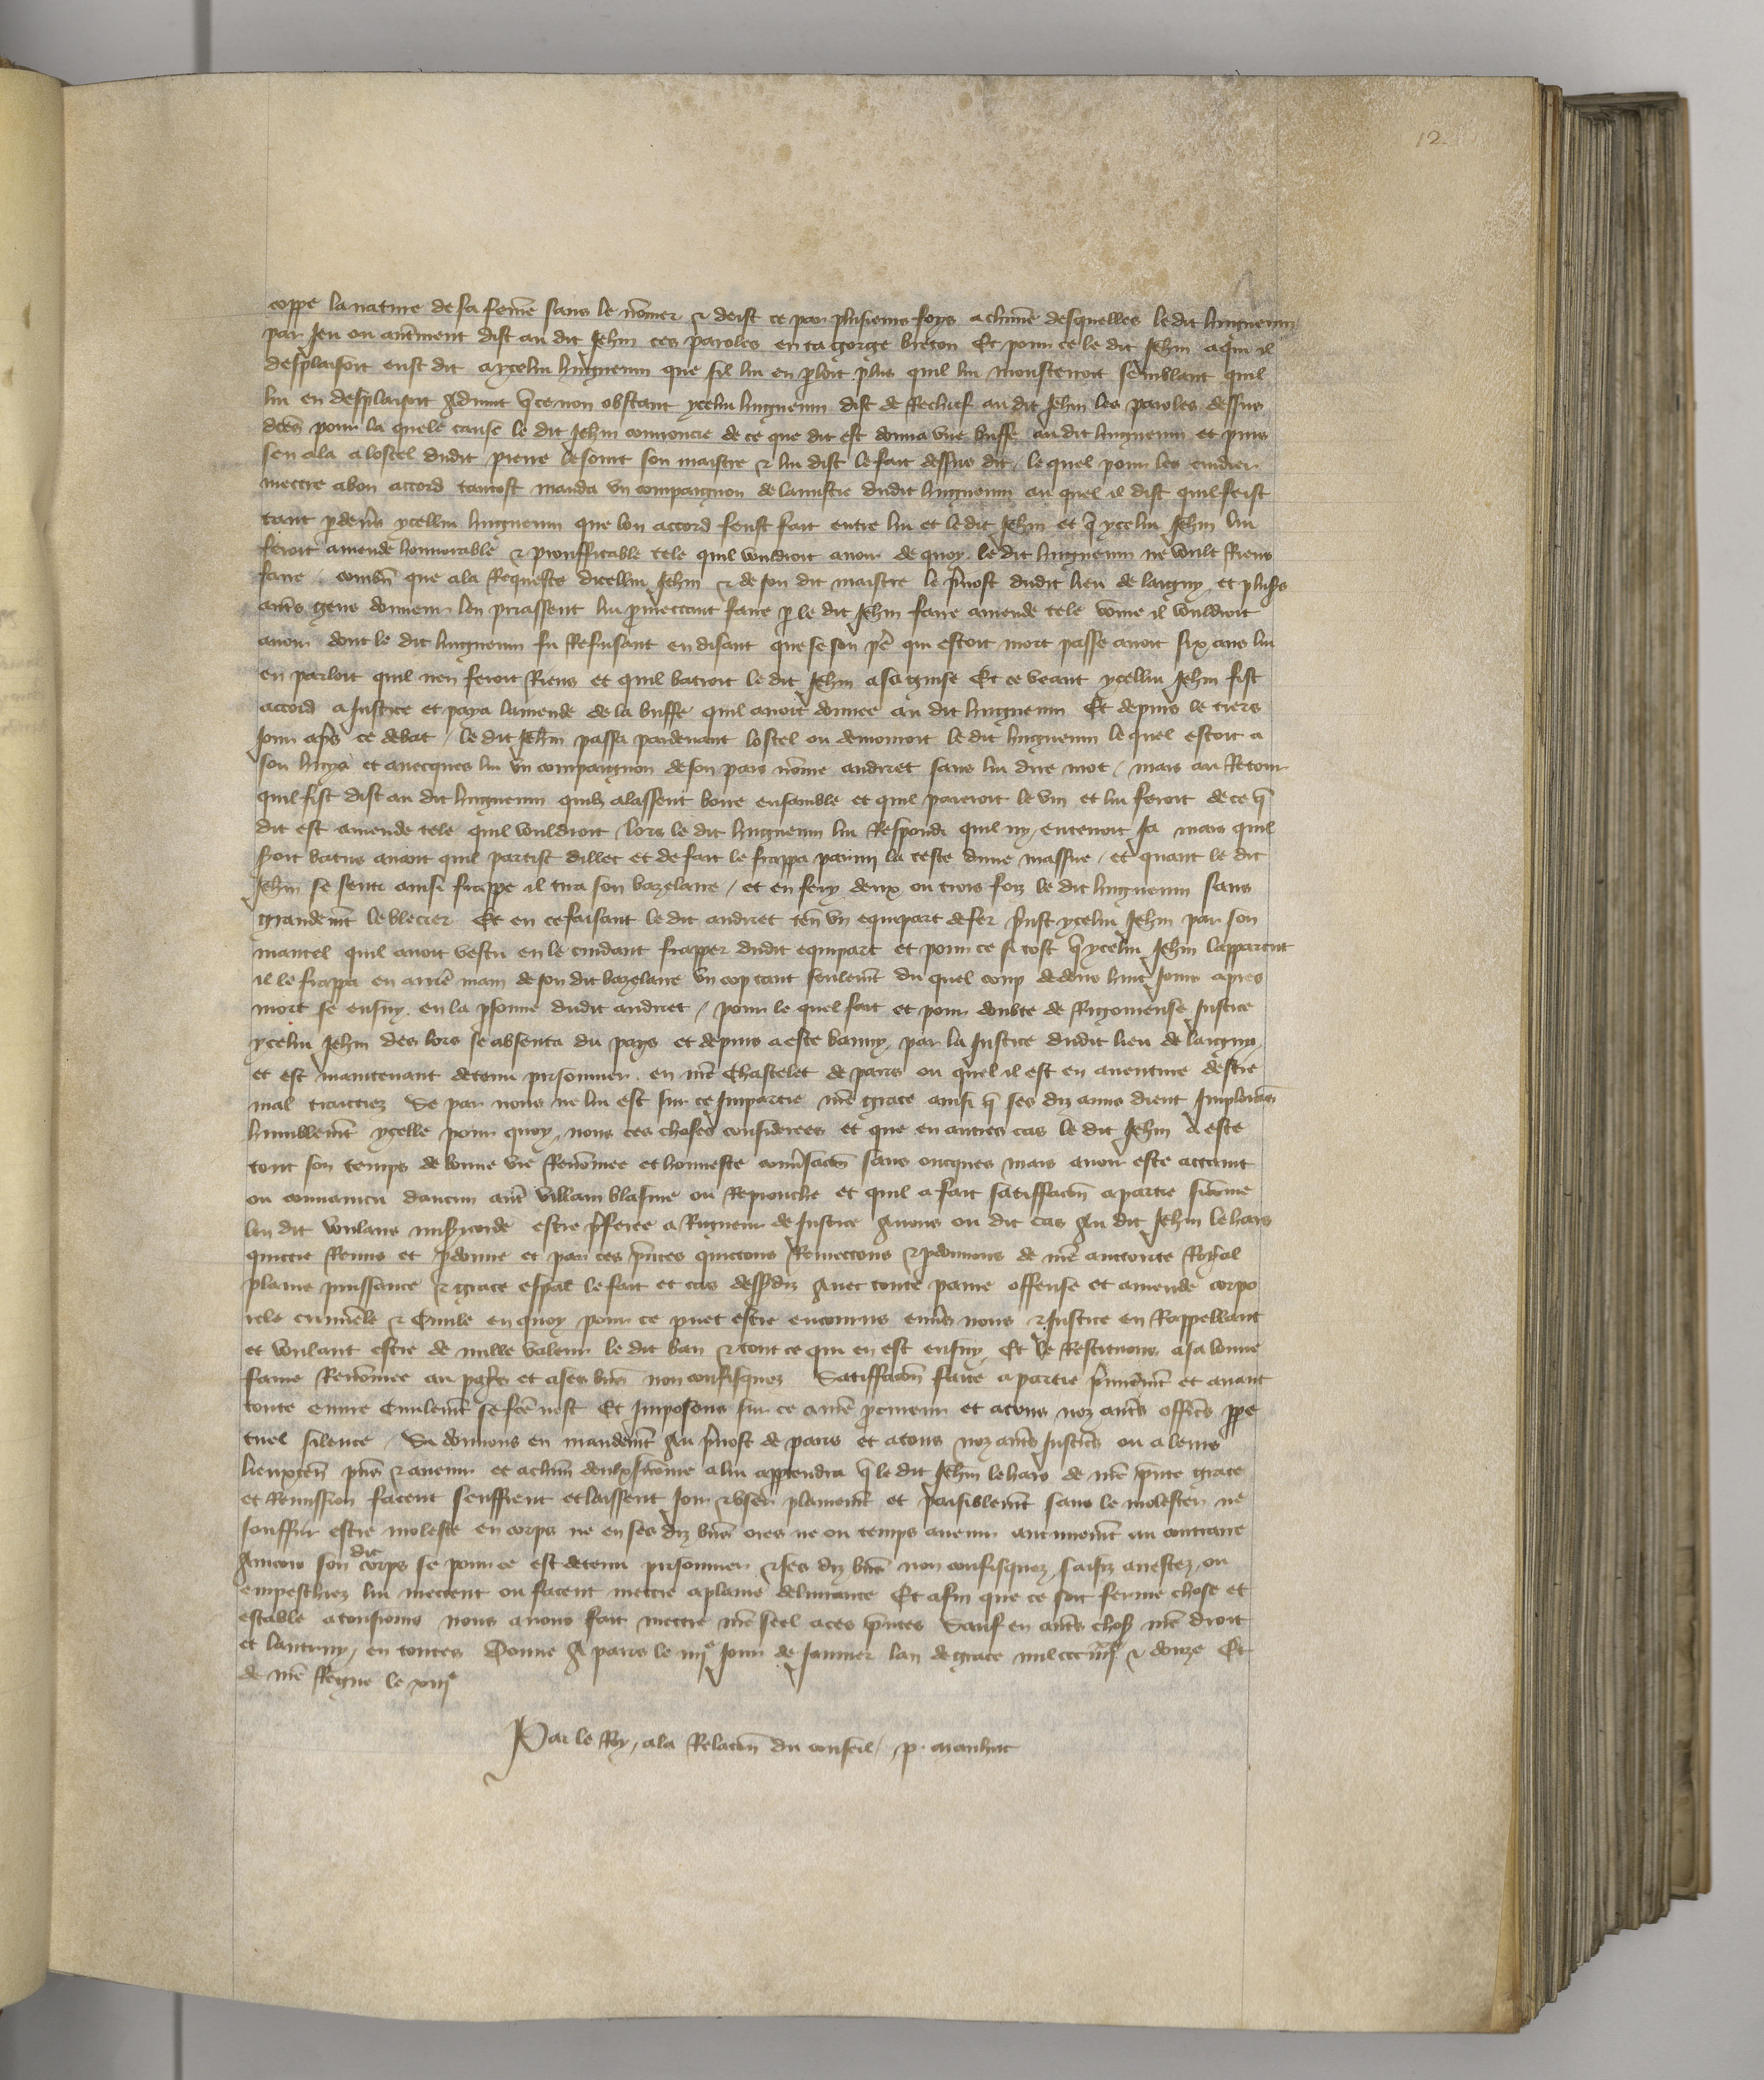 12
coppe la nature de sa feme sans le nomer & deist ce par plusieurs foys a chune desquelles le dit huguenin
par jeu ou autrement dist au dit Jehan ces paroles en ta gorge breton Et pour ce le dit Jehan a qui il
desplaisoit eust dit a ycelui huguenin que sil lui en ploit plus quil lui monsterroit semblant quil
lui en desplairoit Advint que ce non obstant ycelui huguenin dist de Rechief au dit Jehan les paroles dessus
dces pour la quele cause le dit Jehan courrocie de ce que dit est donna une buffe au dit huguenin et puis
sen ala a lostel dudit pierre son maistre & lui dist le fait dessus dit / le quel pour les cuidier
mectre a bon accord tantost manda un compaignon de dudit huguenin au quel il dist quil feist
tant pdevs ycellui huguenin que bon accord feust fait entre lui et le dit Jehan et que ycelui Jehan lui
feroit amende honnorable & prouffitable tele quil vouldroit avoir de quoy le dit huguenin ne voult Riens
faire / combn que a la Requeste dicellui Jehan & de son dit maistre le pvost dudit lieu de laigny et plusrs
auts gens donneur len priassent lui pmectant faire p le dit Jehan faire amende tele come il vouldroit
avoir dont le dit huguenin fu Refusant en disant que se son pe qui estoit mort passe avoit six ans lui
en parloit quil nen feroit Riens et quil batroit le dit Jehan a sa guise Et ce veant ycellui Jehan fist
accord a Justice et paya lamende de la buffe quil avoit donnee au dit huguenin Et depuis le tiers
Jour aps ce debat / le dit Jehan passa pardevant lostel ou demouroit le dit huguenin le quel estoit a
son huys et avecques lui un compaignon de son pais nome andriet sans lui dire mot / mais au Retour
quil fist dist au dit huguenin quilz alassent boire ensamble et quil paieroit le vin et lui feroit de ce que
dit est amende tele quil vouldroit / lors le dit huguenin lui Respondi quil ny entenroit Ja mais quil
soit batus avant quil partist dillec et de fait le frappa parmy la teste dune massue / et quant le dit
Jehan se senti ainsi frappe il tira son bazelaire / et en fery deux ou trois foiz le dit huguenin sans
grandemt le blecier Et en ce faisant le dit andriet ten un equipart de fer prist ycelui Jehan par son
mantel quil avoit vestu en le cuidant frapper dudit equipart et pour ce si tost que ycelui Jehan lapparcut
il le frappa en arre main de son dit bazelaire un cop tant seulemt du quel coup dedens huit Jours apres
mort se ensuy en la psonne dudit andriet / pour le quel fait et pour doubte de Rigoureuse Justice
ycelui Jehan des lors se absenta du pays et depuis a este banny par la Justice dudit lieu de laigny
et est maintenant detenu prisonnier en nre Chastelet de paris ou quel il est en aventure destre
mal traictiez Se par nous ne lui est sur ce Impartie nre grace ainsi que ses diz amis dient Implorans
humblemt ycelle pour quoy nous ces choses considerees et que en autres cas le dit Jehan a este
tout son temps de bonne vie Renomee et honneste convsacon sans oncques mais avoir este attaint
ou convaincu daucun aut villain blasme ou Reprouche et quil a fait satisfacon a partie si come
len dit voulans misicorde estre pferee a Rigueur de Justice Avons ou dit cas Au dit Jehan
quictie Remis et pdonne et par ces pntes quictons Remectons & pdonnons de nre auctorite Royal
plaine puissance & grace espal le fait et cas dessusdiz Avec toute paine offense et amende corpo
rele crimele & Civile en quoy pour ce puet estre encourus envs nous & Justice en Rappellant
et voulant estre de nulle valeur le dit ban & tout ce qui en est ensuy Et le Restituons a sa bonne
fame Renomee au pays et a ses bns non confisquez Satisfacon faite a partie primremt et avant
toute euvre Civilemt se fce nest Et Imposons sur ce a nre pcureur et a tous noz auts officrs ppe
tuel silence / Si donnons en mandemt Au pvost de paris et a tous noz auts Justicrs ou a leurs
lieuxten pns & avenir et a chun deulx si come a lui apptendra que le dit Jehan de nre pnte grace
et Remission facent seuffrent et laissent Joir & user plainemt et paisiblemt sans le molester ne
souffrir estre moleste en corps ne en ses diz bns ores ne ou temps avenir aucunemt au contraire
Aincois son dit corps se pour ce est detenu prisonnier & ses diz bns non confisquez saisiz arrestez ou
empeschiez lui mectent ou facent mectre a plaine delivrance Et afin que ce soit ferme chose et
estable a tousiours nous avons fait mectre nre seel a ces pntes Sauf en auts choses nre droit
et lautruy en toutes Donne A paris le iiije Jour de Janvier lan de grace mil ccc iiijxx & douze Et
de nre Regne le xiije
Par le Roy / a la Relacon du conseil / p. manhac